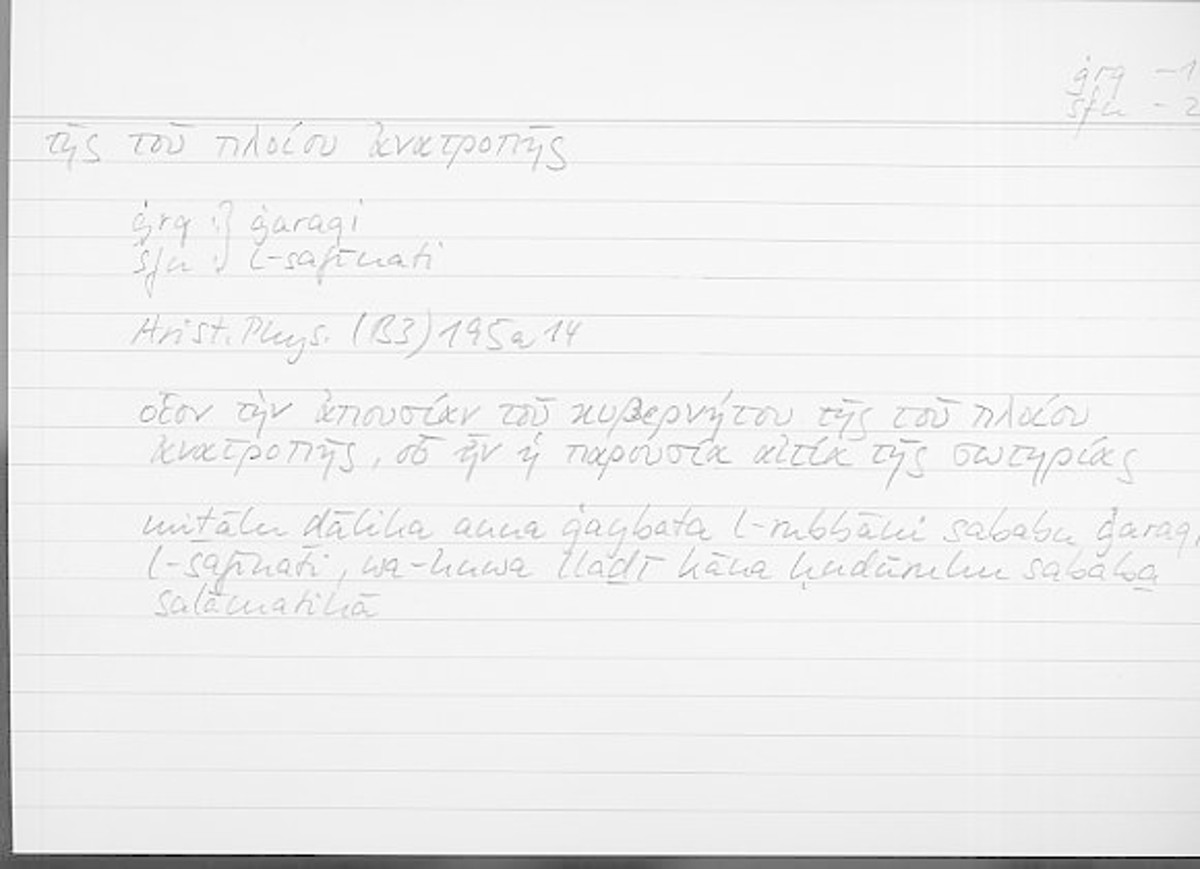 ġrq -1
sfn - 2
τῆς τοῦ πλοίου ἀνατροπῆς
ġrq :} ġaraqi
sfn :} l-safīnati
Arist. Phys. (B3) 195a 14
οἷον τὴν ἀπουσίαν τοῦ κυβερνήτου τῆς τοῦ πλοίου
ἀνατροπῆς, οὗ ἦν ἡ παρουσία αἰτία τῆς σωτηρίας
miṯālu ḏālika anna ġaybata l-rubbāni sababu ġaraqi
l-safīnati, wa-huwa llaḏī kāna ḥuḍūruhu sababa
salāmatihā